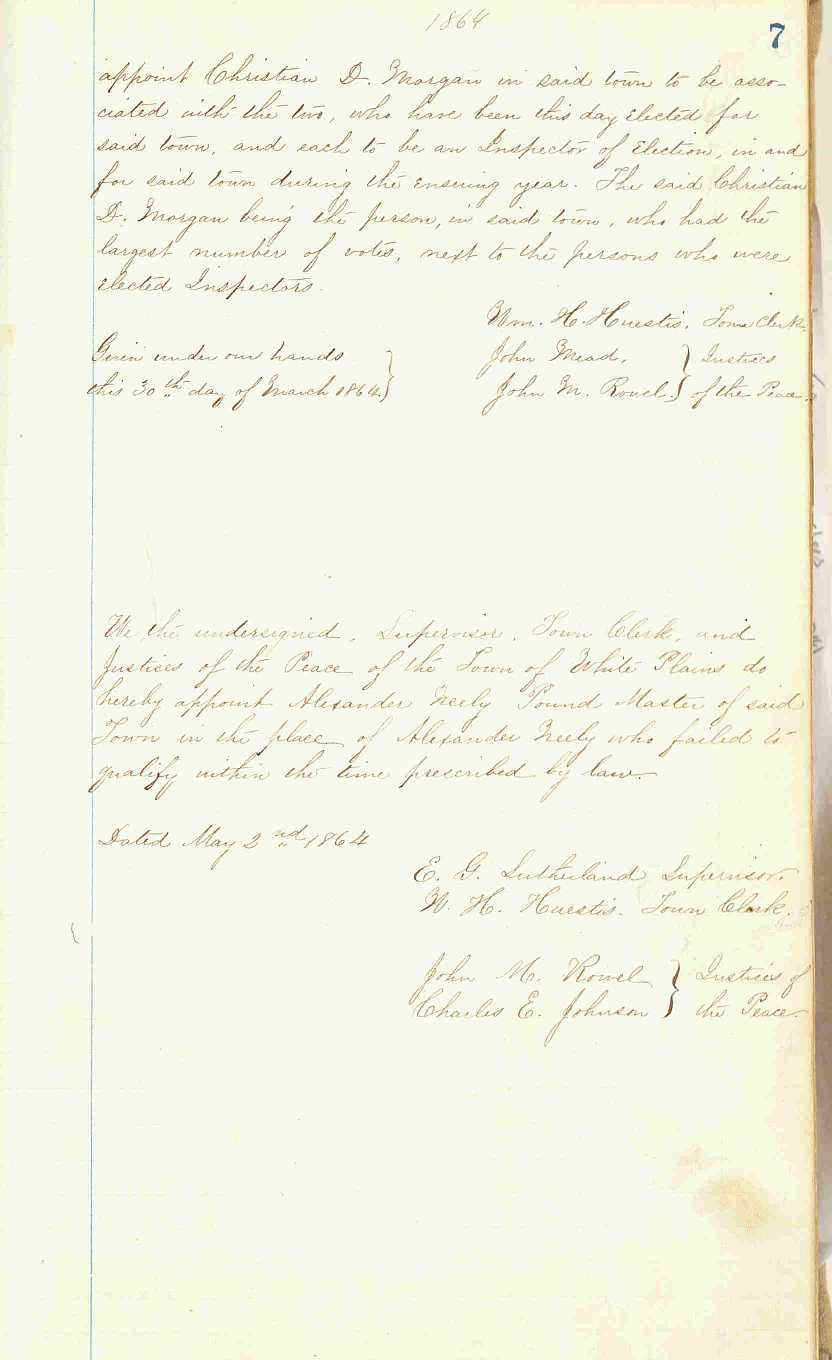 1864
7
appoint Christian D. Morgan in said town to be asso-
ciated with the two, who have been this day Elected for
said town, and each to be an Inspector of Election, in and
for said town during the ensuing year. The said Christian
D. Morgan being the person, in said town, who had the
largest number of votes, next to the persons who were
Elected Inspectors.
Wm. H. Huestis. Town Clerk.
Given under our hands } John Mead. } Justices
this 30th day of March 1864. } John M. Rowel. } of the Peace.
We the undersigned, Supervisor, Town Clerk, and
Justises of the Peace of the Town of White Plains do
hereby appoint Alexander Neely Pound Master of said
Town in the place of Alexander Neely who failed to
qualify within the time prescribed by law.
Dated May 2nd 1864
E. G. Sutherland Supervisor.
W. H. Huestis. Town Clerk.
John M. Rowel } Justices of
Charles E. Johnson } the Peace.